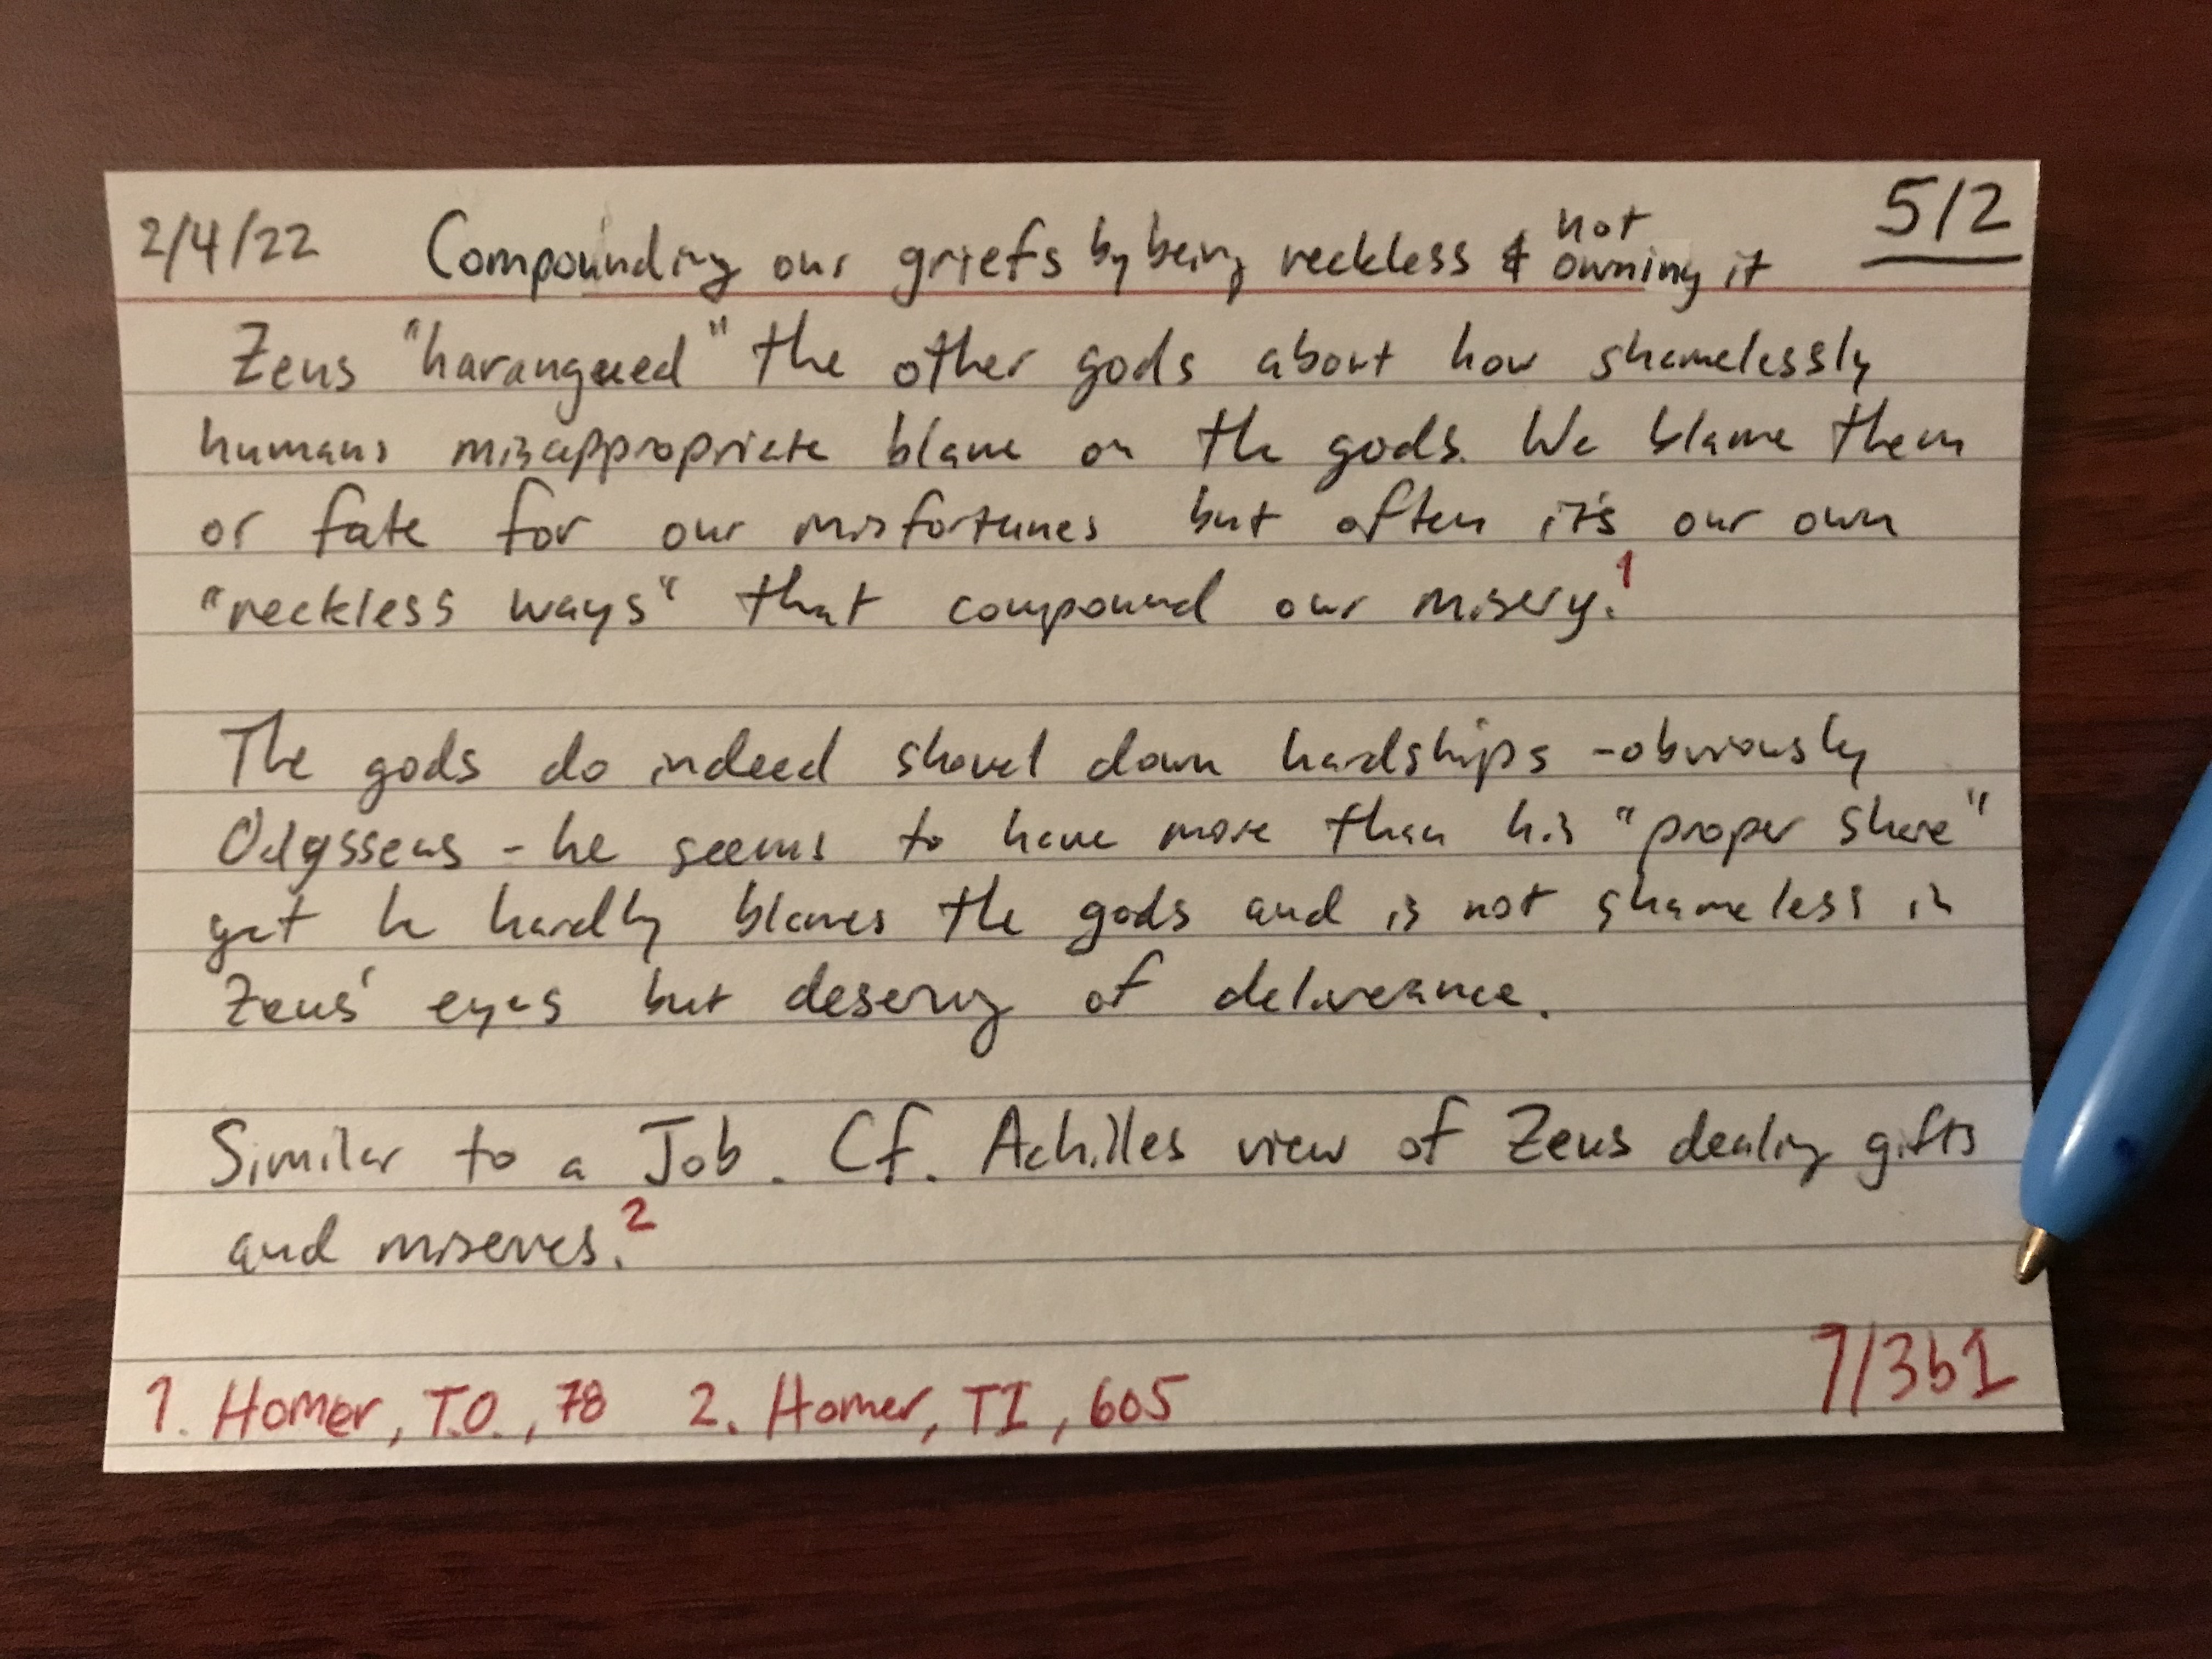 2/4/22 Compounding our griefs by being reckless & not owning it 5/2
Zeus "harangued" the other gods about how shamelessly
humans misappropriate blame on the gods. We blame them
or fate for our misfortunes but often it's our own
"reckless ways" that compound our misery.¹
The gods do indeed shovel down hardships - obviously
Odysseus - he seems to have more than his "proper share"
yet he hardly blames the gods and is not shameless in
Zeus' eyes but deserving of deliverance.
Similar to a Job. Cf. Achilles view of Zeus dealing gifts
and miseries.²
1. Homer, T.O., 78 2. Homer, TI, 605 7/3b1